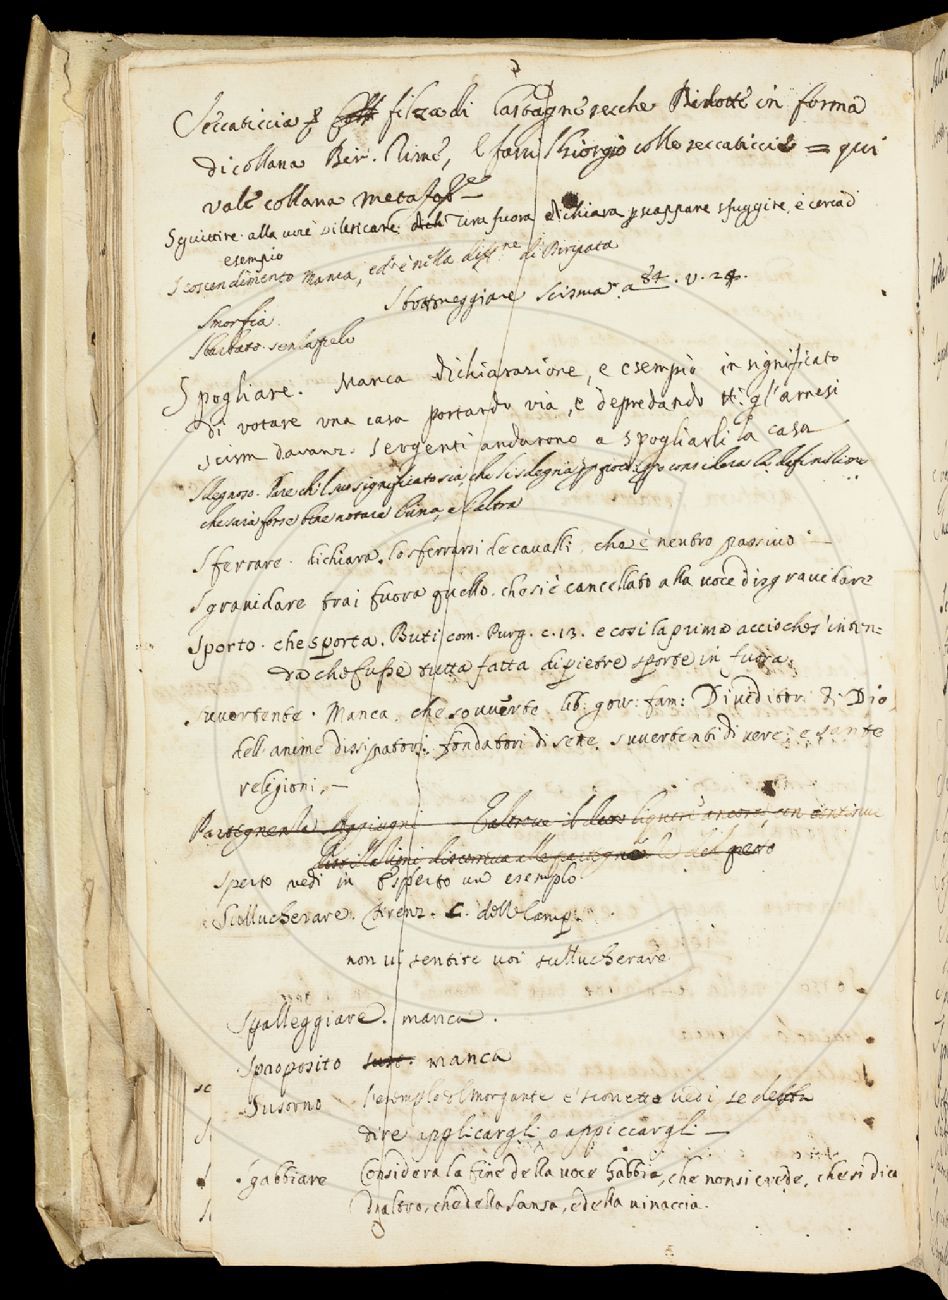 Seccaticcia p filza di Castagne secche Ridotte in forma
di collana Ber. Rime, E fassi Giorgio colle seccaticcie = qui
vale collana metaf.
Sguittire alla voce tira fuora e dichiara p scappare sfuggire, e cerca d
esempio
Scoscendimento Manca, ed è nella diffne di
Sbottoneggiare Scisma a 84. v. 24.
Smorfia
Sbarbato senza pelo
Spogliare. Manca dichiarazione, e esempio in significato
di votare una casa portando via, e depredando tti gl'arnesi
scism davanz. sergenti andarono a spogliarli la casa
Sdegnoso. Pare ch'l suo significato sia, che si sdegna p poco, considera la definitione
che saria forse bene notare l'una, e l'altra
Sferrare. dichiara lo sferrarsi de cavalli, cha è neutro passivo —
Sgravidare trai fuora quello che si è cancellato alla voce disgravidare
Sporto. che sporta. Buti com. Purg. c. 13. e così la prima acciochés'inten=
da che fusse tutta fatta di pietre sporte in fuora.
suvertente. Manca, che sovverte. lib: gov: fam: Di Dio
dell anime dissipatori: fondatori di sette, suvertenti di vere, e sente
religioni. —
sperto vedi in Esperto un esemplo
Scillucherare. Firenz. C. dell Camp.
non vi sentite voi sullucherare
Spalleggiare. manca.
Sproposito manca
Susorno l'esemplo del Morgante è scionette vedi se debba
dire applicargli o appiccargli —
Sgabbiare Considera la fine della voce Gabbia, che non si crede, che si dica
d'altro, che della sansa, e della vinaccia.